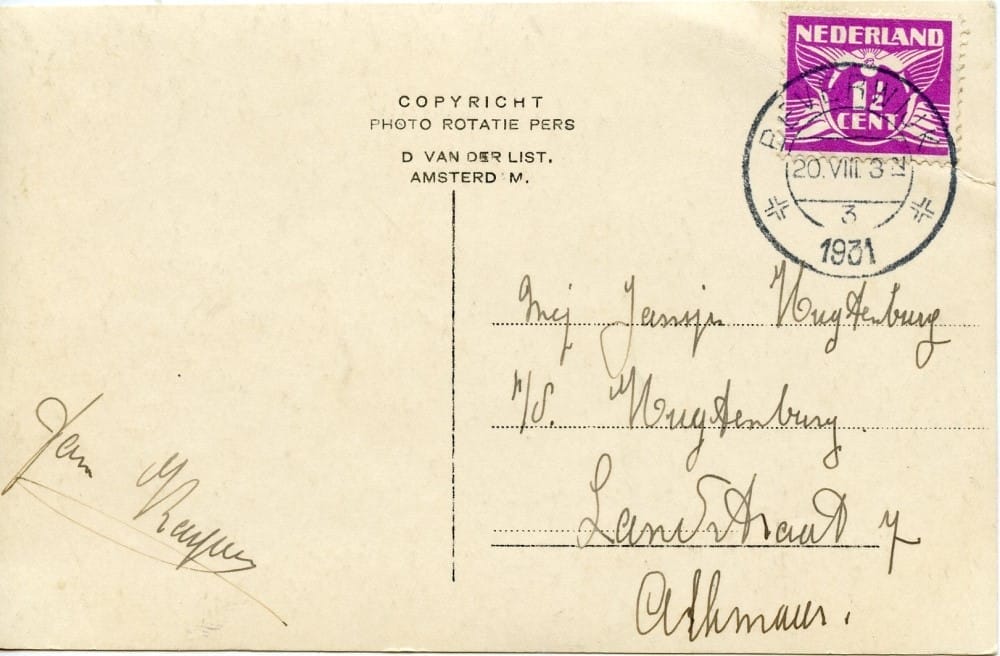 COPYRICHT
PHOTO ROTATIE PERS
D VAN DER LIST.
AMSTERD M.
NEDERLAND
1½
CENT
20.VIII.3
3
1931
Mej Jansje Hugtenburg
Hugtenburg
Landstraat 7
Alkmaar.
Jan